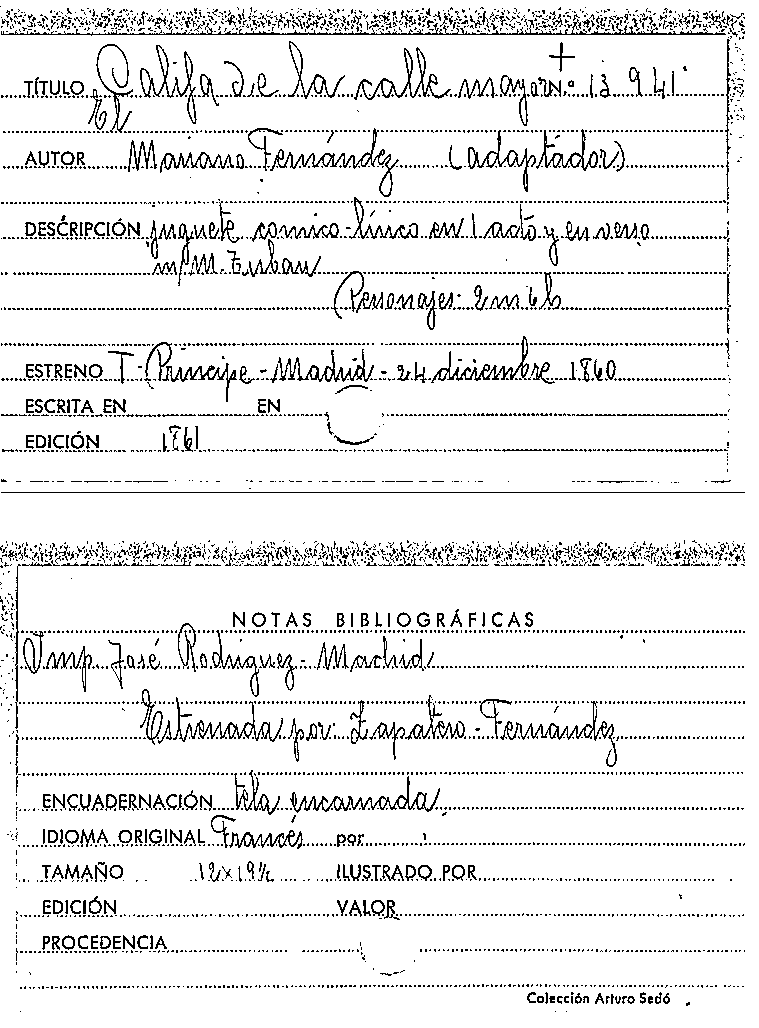 TÍTULO Califa de la calle mayor N.º 13 941
El
AUTOR Mariano Fernández (adaptador)
DESCRIPCIÓN juguete comico-lírico en 1 acto y en verso
m/M.
Personajes: 2 m 6 h
ESTRENO T. Principe - Madrid - 24 diciembre 1860
ESCRITA EN EN
EDICIÓN 1861
NOTAS BIBLIOGRÁFICAS
Imp. José Rodriguez - Madrid
Estrenada por: Zapatero - Fernández
ENCUADERNACIÓN tela encarnada
IDIOMA ORIGINAL Francés por
TAMAÑO 12x19½ ILUSTRADO POR
EDICIÓN VALOR
PROCEDENCIA
Colección Arturo Sedó